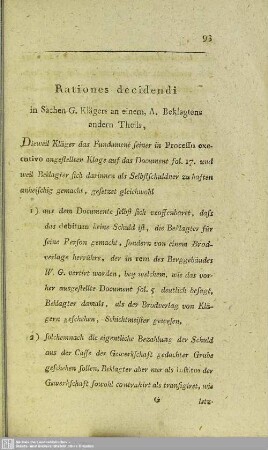 93
Rationes decidendi
in Sachen G. Klägers an einem, A. Beklagtens
andern Theils,
Dieweil Kläger das Fundament seiner in Processu exe-
cutivo angestellten Klage auf das Document fol. 17. und
weil Beklagter sich darinnen als Selbstschuldner zu haften
anheischig gemacht, gesetzet gleichwohl
1) aus dem Documente selbst sich veroffenbaret, daß
das debitum keine Schuld ist, die Beklagter für
seine Person gemacht, sondern von einem Brod-
verlage herrühre, der in dem Berggebäudes
W. G. vertirt worden, bey welchem, wie das vor-
her ausgestellte Document fol. 5 deutlich besagt,
Beklagter damals, als der Brodverlag von Klä-
gern geschehen, Schichtmeister gewesen.
2) solchemnach die eigentliche Bezahlung der Schuld
aus der Casse der Gewerkschaft gedachter Grube
geschehen sollen, Beklagter aber nur als institor der
Gewerkschaft sowohl contrahirt als transigiret, wie
G
letz-